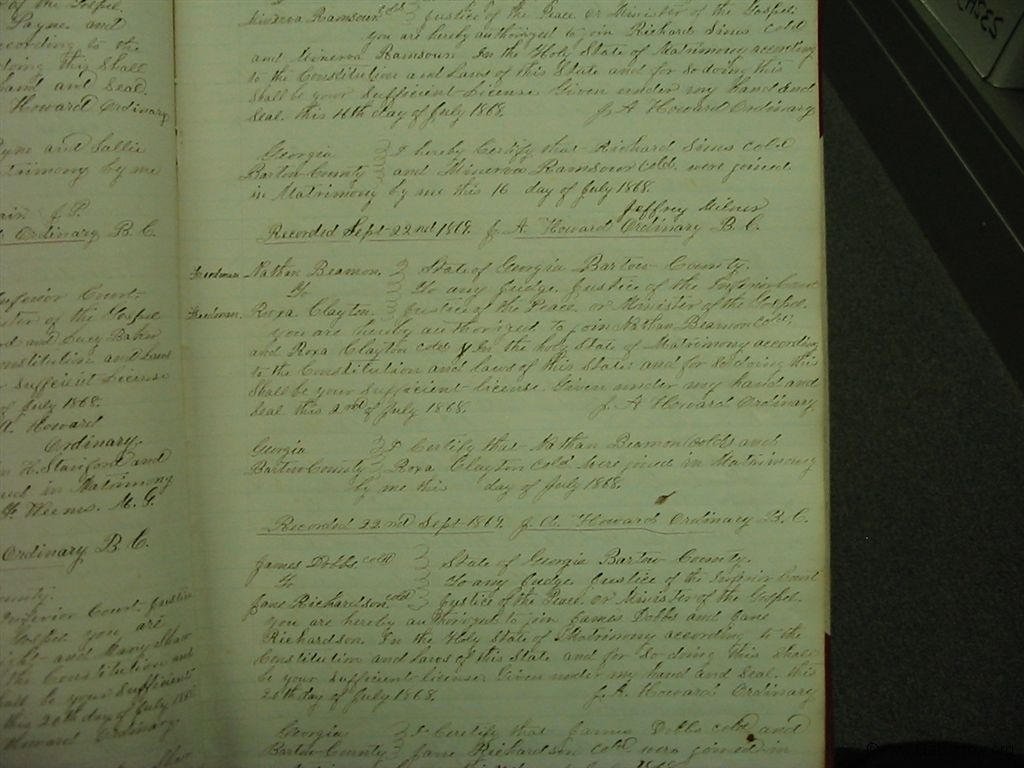 of the Gospel.
Payne and
according to the
doing this Shall
hand and Seal.
Howard Ordinary
Payne and Sallie
Matrimony by me
J. P.
Ordinary B. C.
Inferior Court
of the Gospel
and Lucy Baker
Constitution and Laws
Sufficient License
of July 1868.
A. Howard
Ordinary.
H. Stanford and
in Matrimony
Weems. M. G.
Ordinary B. C.
County.
Inferior Court Justice
Gospel you are
and Mary Shaw
the Constitution and
shall be your Sufficient
this 20th day of July 186
Howard Ordinary.
Minerva Ramsour Cold Justice of the Peace or Minister of the Gospel
you are hereby authorized to join Richard Sims cold
and Minerva Ramsour. In the Holy State of Matrimony according
to the Constitution and Laws of this State and for so doing this
Shall be your Sufficient License. Given under my hand and
Seal this 16th day of July 1868. J. A Howard Ordinary
Georgia I hereby Certify that Richard Sims cold
Bartow County and Minerva Ramsour cold. were joined
in Matrimony by me this 16 day of July 1868.
Jeffrey Milner
Recorded Sept 22nd 1869. J. A. Howard Ordinary B. C.
Freedman Nathan Beamon. State of Georgia Bartow County.
To To any Judge. Justice of the Inferior Court
Roxa Clayton. Justice of the Peace. or Minister of the Gospel.
you are hereby authorized to join Nathan Beamon cold,
and Roxa Clayton cold In the holy State of Matrimony according
to the Constitution and laws of this State and for so doing this
Shall be your Sufficient license. Given under my hand and
Seal this 2nd of July 1868. J. A Howard Ordinary.
Georgia I Certify that Nathan Beamon Cold and
Bartow County Roxa Clayton Cold were joined in Matrimony
by me this day of July 1868.
Recorded 22nd Sept 1869. J. A. Howard Ordinary B. C.
James Dobbs cold State of Georgia Bartow County.
To To any Judge Justice of the Inferior Court
Jane Richardson cold Justice of the Peace or Minister of the Gospel.
you are hereby authorized to join James Dobbs and Jane
Richardson. In the Holy State of Matrimony according to the
Constitution and Laws of this State and for so doing this Shall
be your Sufficient License Given under my hand and Seal this
20th day of July 1868. J. A. Howard Ordinary
Georgia I Certify that James Dobbs cold and
Bartow County Jane Richardson cold were joined in